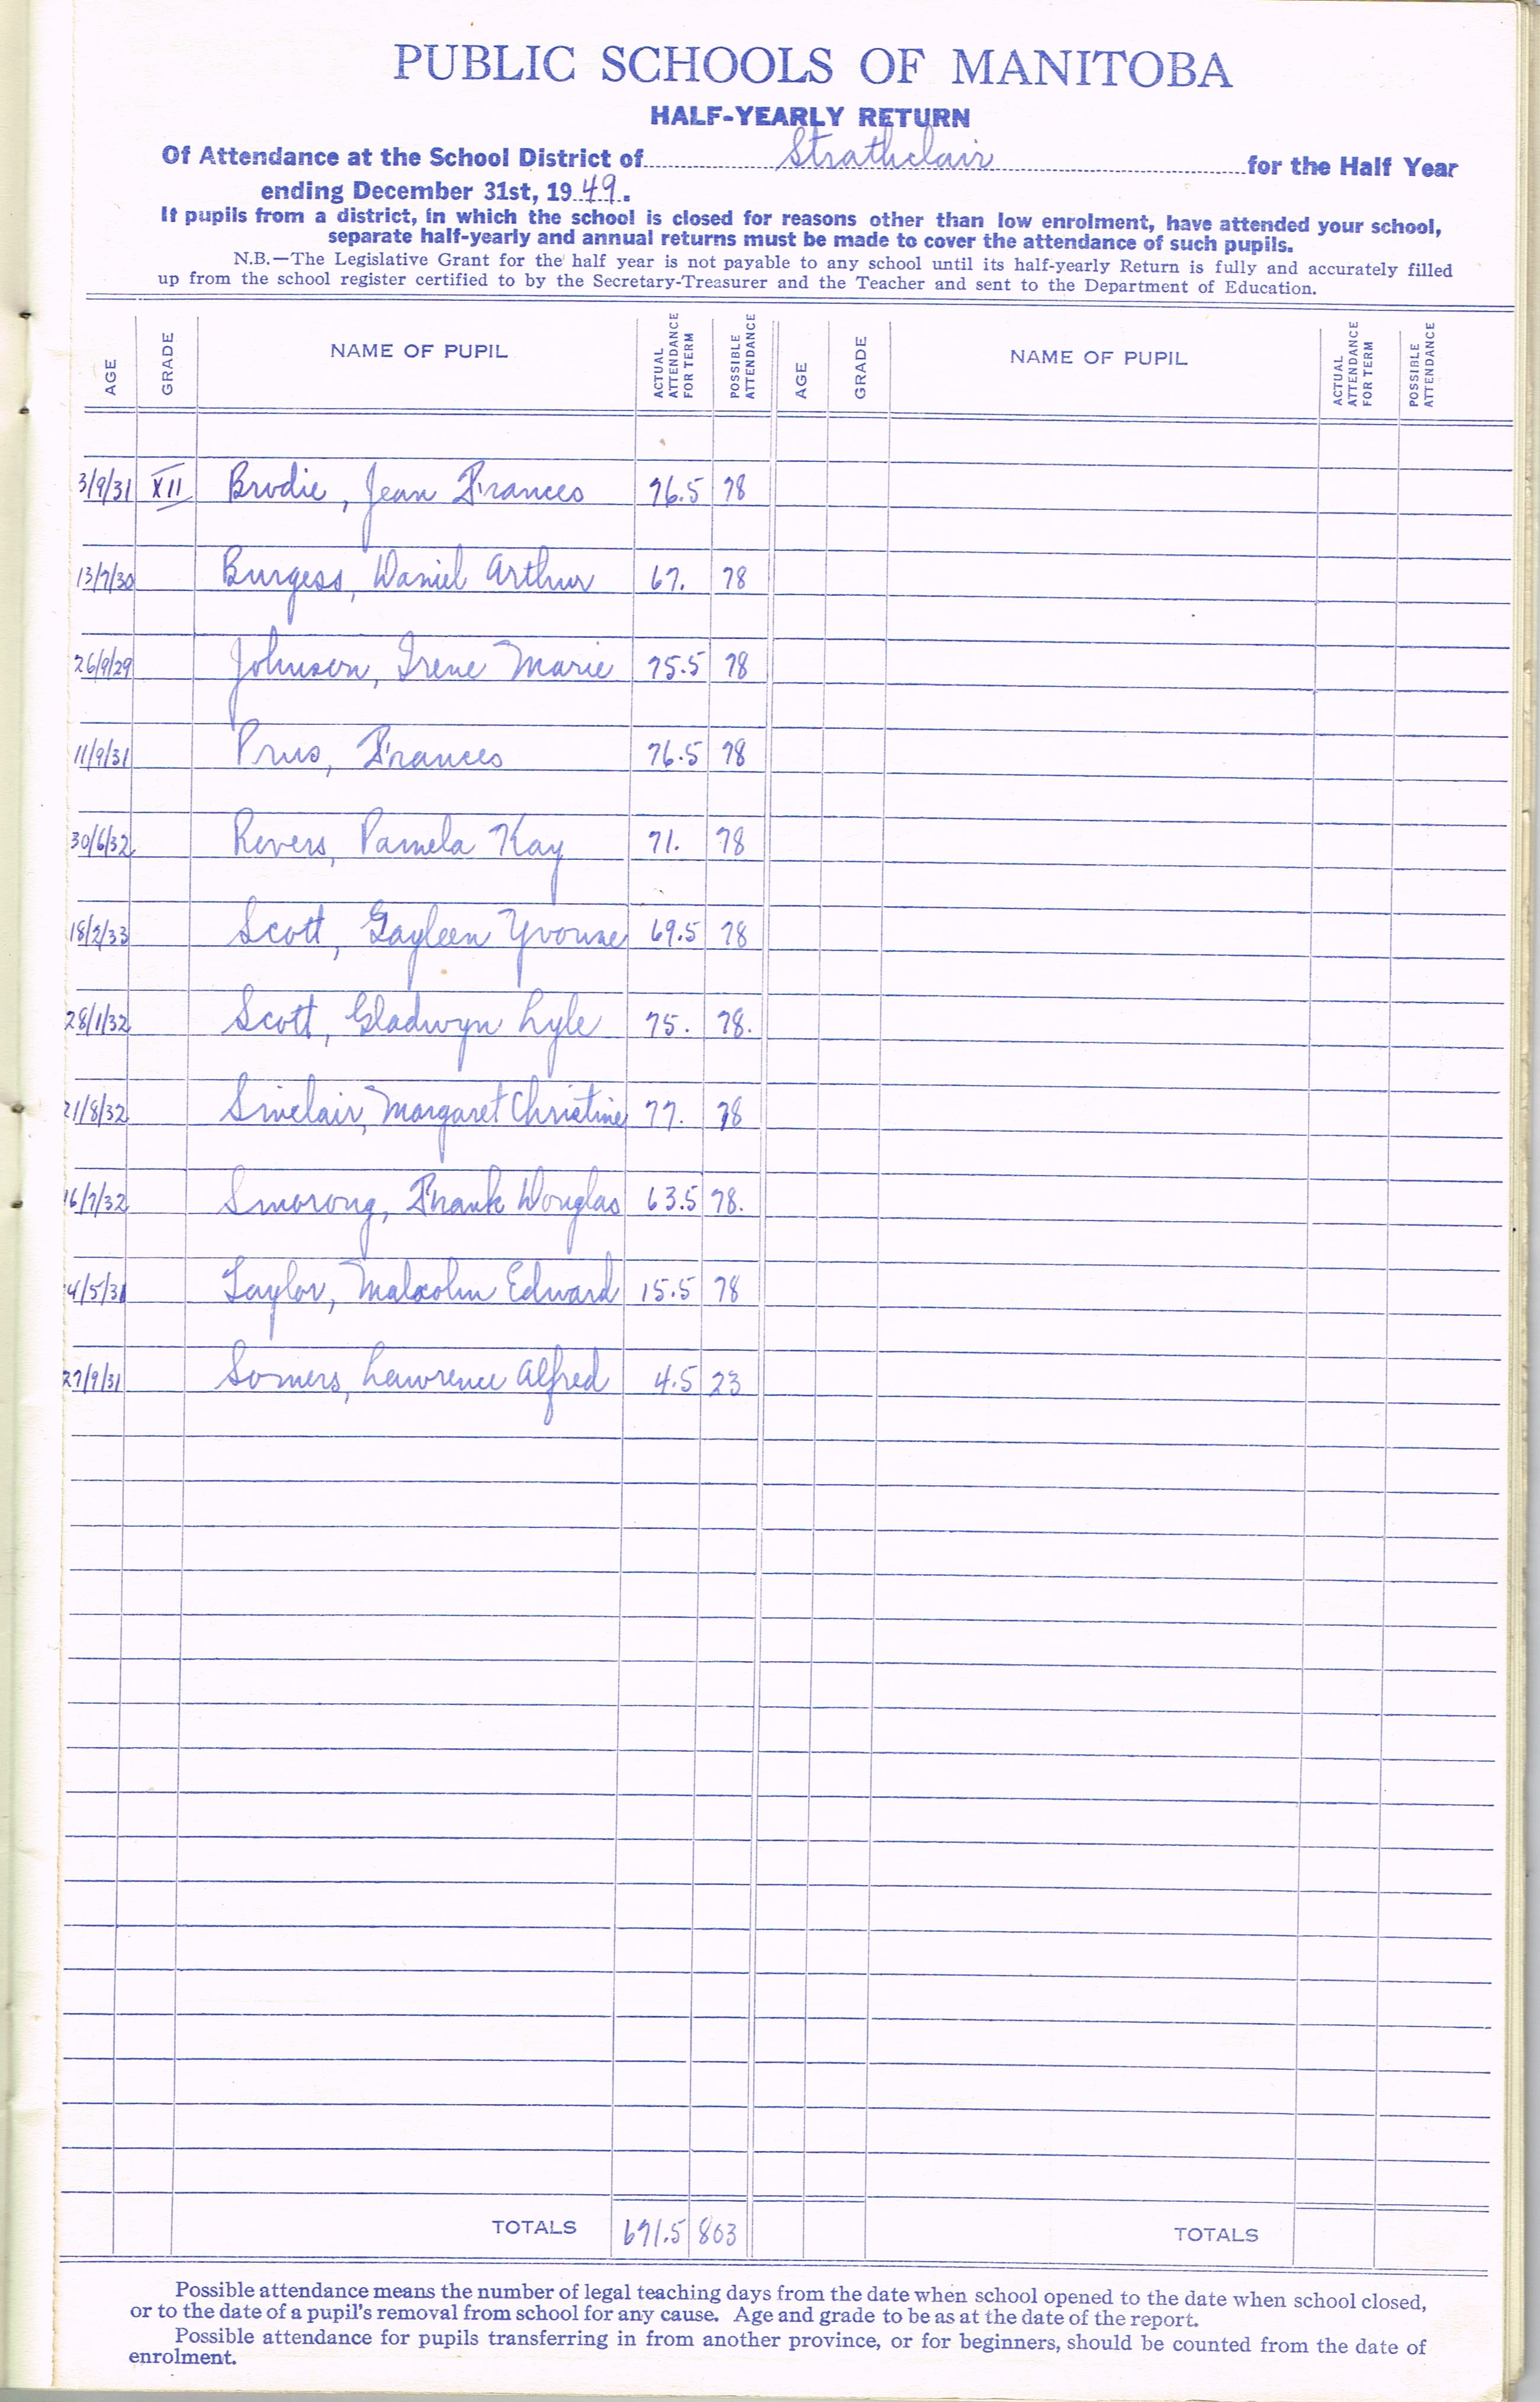 PUBLIC SCHOOLS OF MANITOBA
HALF-YEARLY RETURN
Of Attendance at the School District of Strathclair for the Half Year
ending December 31st, 1949.
If pupils from a district, in which the school is closed for reasons other than low enrolment, have attended your school,
separate half-yearly and annual returns must be made to cover the attendance of such pupils.
N.B.—The Legislative Grant for the half year is not payable to any school until its half-yearly Return is fully and accurately filled
up from the school register certified to by the Secretary-Treasurer and the Teacher and sent to the Department of Education.
AGE GRADE NAME OF PUPIL ACTUAL ATTENDANCE FOR TERM POSSIBLE ATTENDANCE AGE GRADE NAME OF PUPIL ACTUAL ATTENDANCE FOR TERM POSSIBLE ATTENDANCE
3/9/31 XII Brodie, Jean Frances 76.5 78
13/7/30 Burgess, Daniel Arthur 67. 78
26/9/29 Johnson, Irene Marie 75.5 78
11/9/31 Prus, Frances 76.5 78
30/6/32 Revers, Pamela Kay 71. 78
18/2/33 Scott, Gayleen Yvonne 69.5 78
28/1/32 Scott, Gladwyn Lyle 75. 78.
21/8/32 Sinclair, Margaret Christine 77. 78
16/7/32 Smorong, Frank Douglas 63.5 78.
4/5/31 Taylor, Malcolm Edward 15.5 78
27/9/31 Somers, Lawrence Alfred 4.5 23
TOTALS 671.5 803 TOTALS
Possible attendance means the number of legal teaching days from the date when school opened to the date when school closed,
or to the date of a pupil's removal from school for any cause. Age and grade to be as at the date of the report.
Possible attendance for pupils transferring in from another province, or for beginners, should be counted from the date of
enrolment.